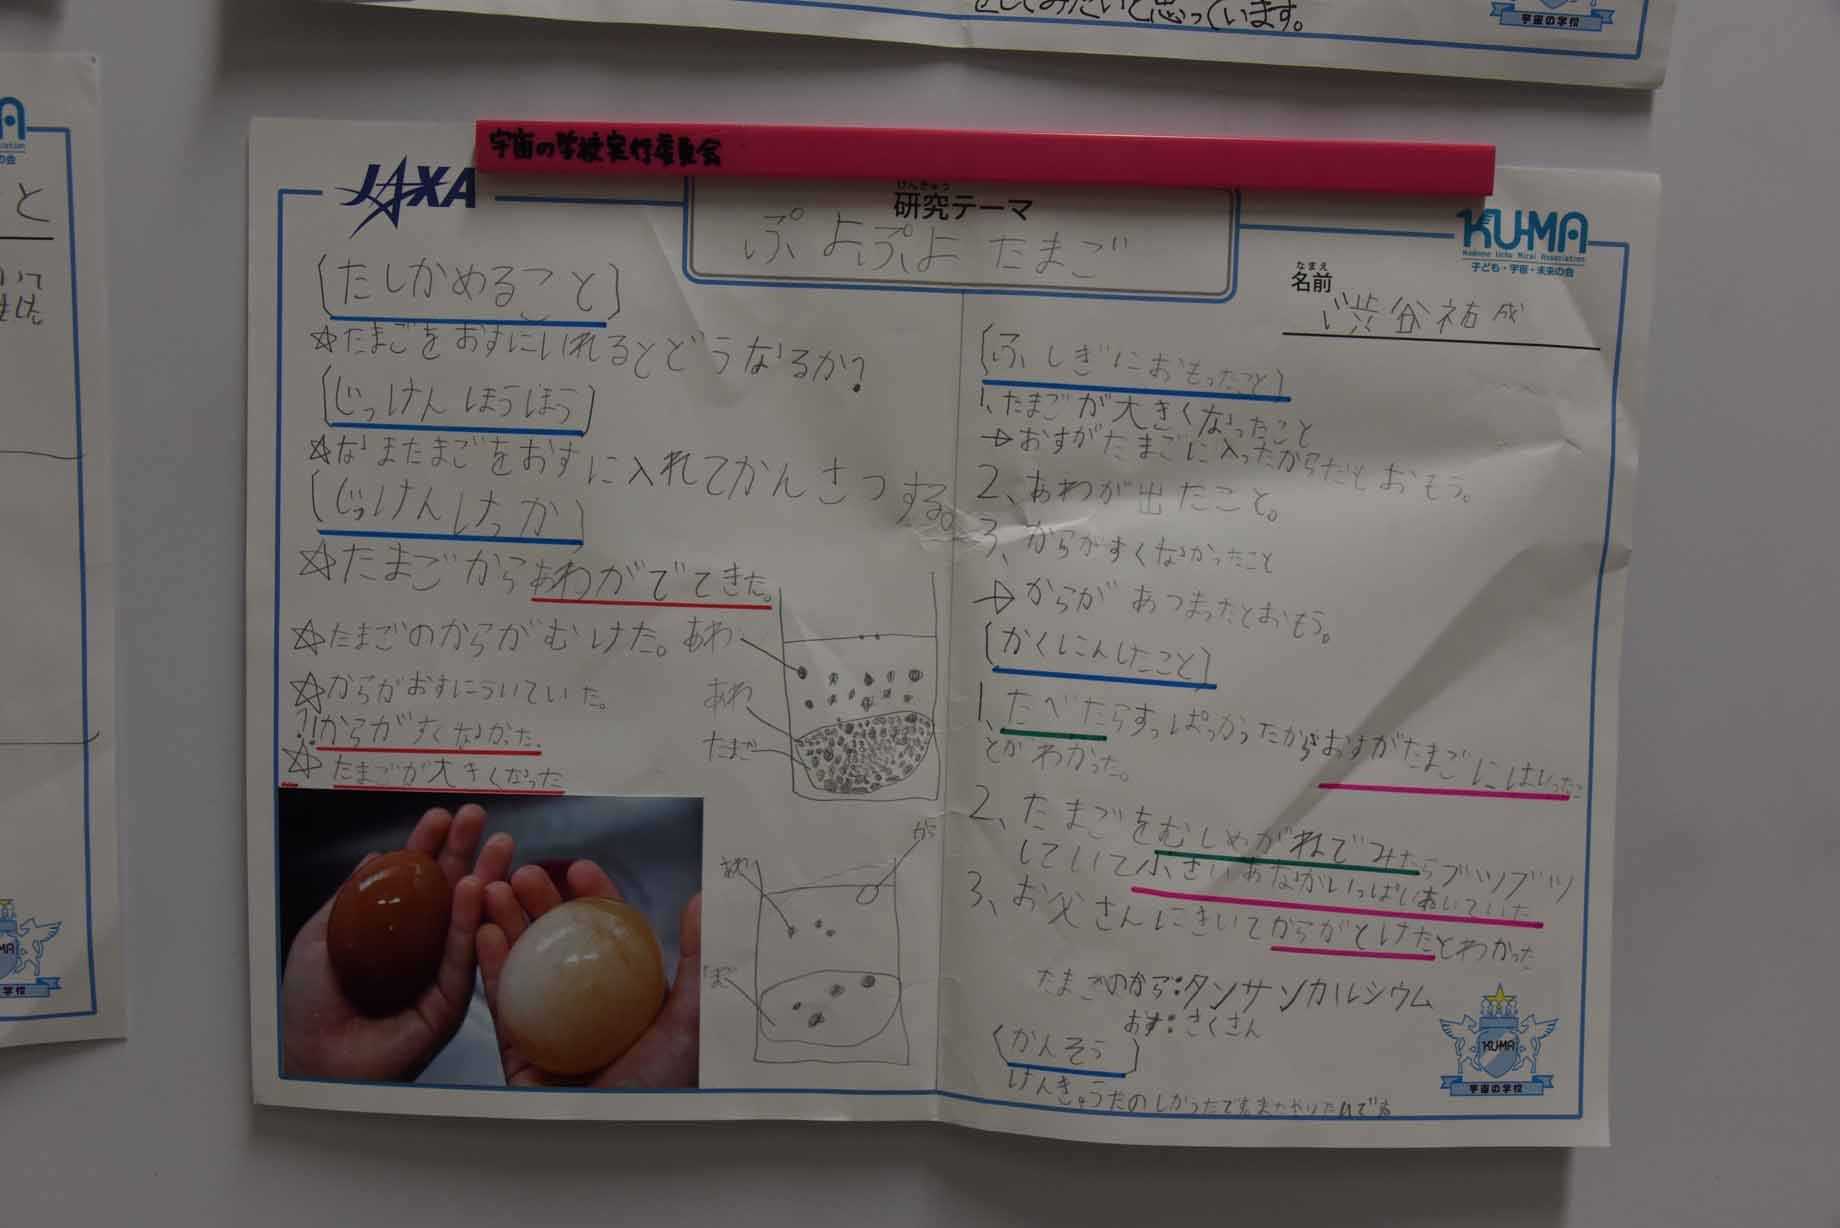 をしてみたいと思っています。
宇宙の学校
宇宙の学校実行委員会
JAXA
けんきゅう
研究テーマ
ぷよぷよたまご
KU-MA
Kodomo Uchu Mirai Association
子ども・宇宙・未来の会
なまえ
名前
渋谷祐成
(たしかめること)
☆たまごをおすにいれるとどうなるか?
(じっけんほうほう)
☆なまたまごをおすに入れてかんさつする。
(じっけんけっか)
☆たまごからあわがでてきた。
☆たまごのからがむけた。
☆からがおすにういていた。
?!からがすくなかった。
☆たまごが大きくなった
あわ
あわ
たまご
あわ
から
たまご
(ふしぎにおもったこと)
1、たまごが大きくなったこと
→おすがたまごに入ったからだとおもう。
2、あわが出たこと。
3、からがすくなかったこと
→からがあつまったとおもう。
(かくにんしたこと)
1、たべたらすっぱかったからおすがたまごにはいったこ
とがわかった。
2、たまごをむしめがねでみたらブツブツ
していて小さいあながいっぱいあいていた
3、お父さんにきいてからがとけたとわかった
たまごのから:タンサンカルシウム
おす:さくさん
(かんそう)
けんきゅうたのしかったですまたやりたいです
KU-MA
宇宙の学校